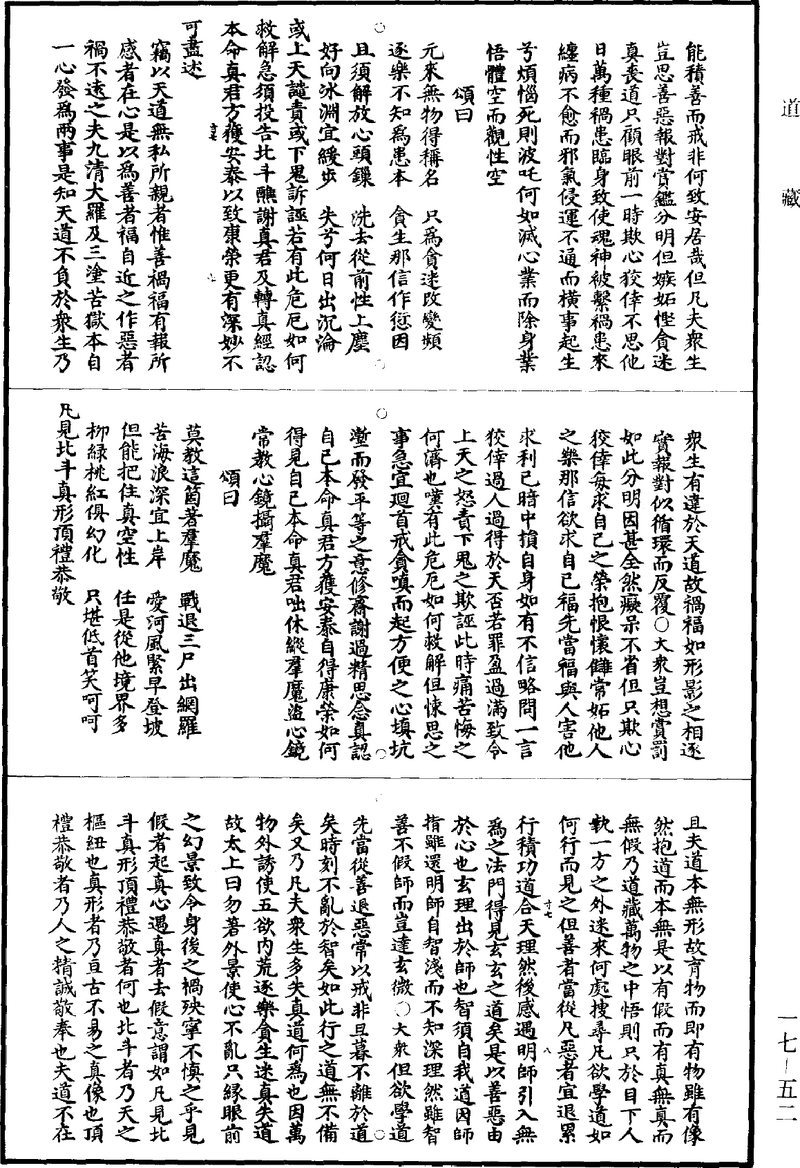 道藏
能積善而戒非何致安居哉但凡夫衆生
豈思善惡報對賞鑑分明但嫉妬慳貪迷
真喪道只顧眼前一時欺心狡倖不思他
日萬種禍患臨身致使魂神被繫禍患來
纏病不愈而邪氣侵運不通而橫事起生
兮煩惱死則波吒何如滅心業而除身業
悟體空而觀性空
頌曰
元來無物得稱名　只為貪迷改變頻
逐樂不知為患本　貪生那信作愆因
且須解放心頭鏁　洗去從前性上塵
好向冰淵宜緩步　失兮何日出沉淪
或上天譴責或下鬼訴誣若有此危厄如何
救解急須投告北斗醮謝真君及轉真經認
本命真君方獲安泰以致康榮更有深妙不
可盡述
竊以天道無私所親者惟善禍福有報所
感者在心是以為善者福自近之作惡者
禍不遠之夫九清大羅及三塗苦獄本自
一心發為兩事是知天道不負於衆生乃
衆生有違於天道故禍福如形影之相逐
實報對似循環而反覆○大衆豈想賞罰
如此分明因甚全然癡呆不省但只欺心
狡倖每求自己之榮抱恨懷讎常妬他人
之樂那信欲求自己福先當福與人害他
求利已暗中損自身如有不信略問一言
狡倖過人過得於天否若罪盈過滿致令
上天之怒責下鬼之欺誣此時痛苦悔之
何濟也嘆有此危厄如何救解但悚思之
事急宜迴首戒貪嗔而起方便之心填坑
壍而發平等之意修齋謝過精思念真認
自己本命真君方獲安泰自得康榮如何
得見自己本命真君咄休縱羣魔盜心鏡
常教心鏡攝羣魔
頌曰
莫教這箇著羣魔　戰退三尸出網羅
苦海浪深宜上岸　愛河風緊早登坡
但能把住真空性　任是從他境界多
柳緑桃紅俱幻化　只堪低首笑呵呵
凡見北斗真形頂禮恭敬
且夫道本無形故育物而即有物雖有像
然抱道而本無是以有假而有真無真而
無假乃道藏萬物之中悟則只於目下人
執一方之外迷來何處搜尋凡欲學道如
何行而見之但善者當從凡惡者宜退累
行積功道合天理然後感遇明師引入無
為之法門得見玄玄之道矣是以善惡由
於心也玄理出於師也智須自我道因師
指雖還明師自智淺而不知深理然雖智
善不假師而豈達玄微○大衆但欲學道
先當從善退惡常以戒非旦暮不離於道
矣時刻不亂於智矣如此行之道無不備
矣又乃凡夫衆生多失真道何為也因萬
物外誘使五欲内荒逐樂貪生迷真失道
故太上曰勿著外景使心不亂只緣眼前
之幻景致令身後之禍殃寧不慎之乎見
假者起真心遇真者去假意謂如凡見北
斗真形頂禮恭敬者何也北斗者乃天之
樞紐也真形者乃亘古不易之真像也頂
禮恭敬者乃人之精誠敬奉也夫道不在
一七–五二